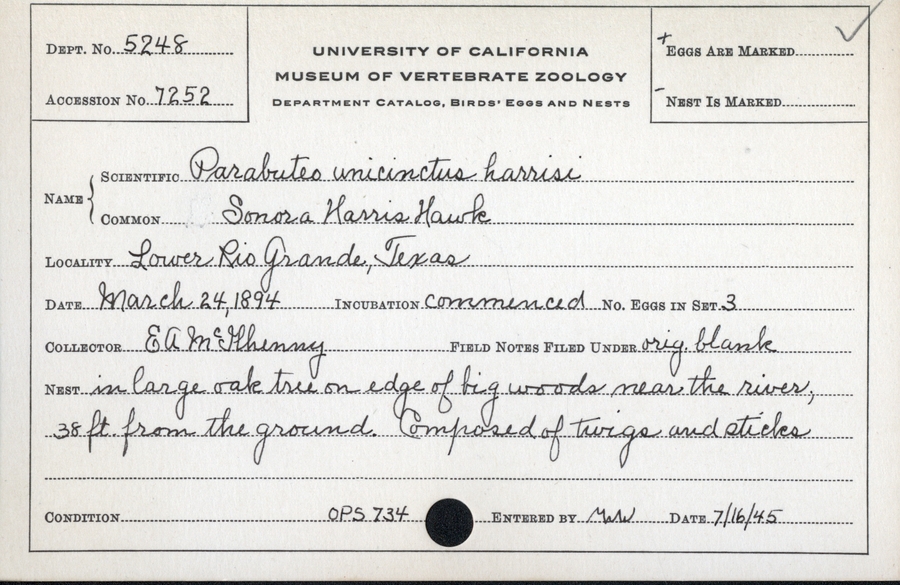 Dept. No. 5248
Accession No. 7252
UNIVERSITY OF CALIFORNIA
MUSEUM OF VERTEBRATE ZOOLOGY
Department Catalog, Birds' Eggs and Nests
+ Eggs Are Marked ✓
- Nest Is Marked
Name { Scientific Parabuteo unicinctus harrisi
Common Sonora Harris Hawk
Locality Lower Rio Grande, Texas
Date March 24, 1894 Incubation commenced No. Eggs in Set 3
Collector E A McIlhenny Field Notes Filed Under orig. blank
Nest in large oak tree on edge of big woods near the river,
38 ft. from the ground. Composed of twigs and sticks
Condition OPS 734 Entered by Date 7/16/45